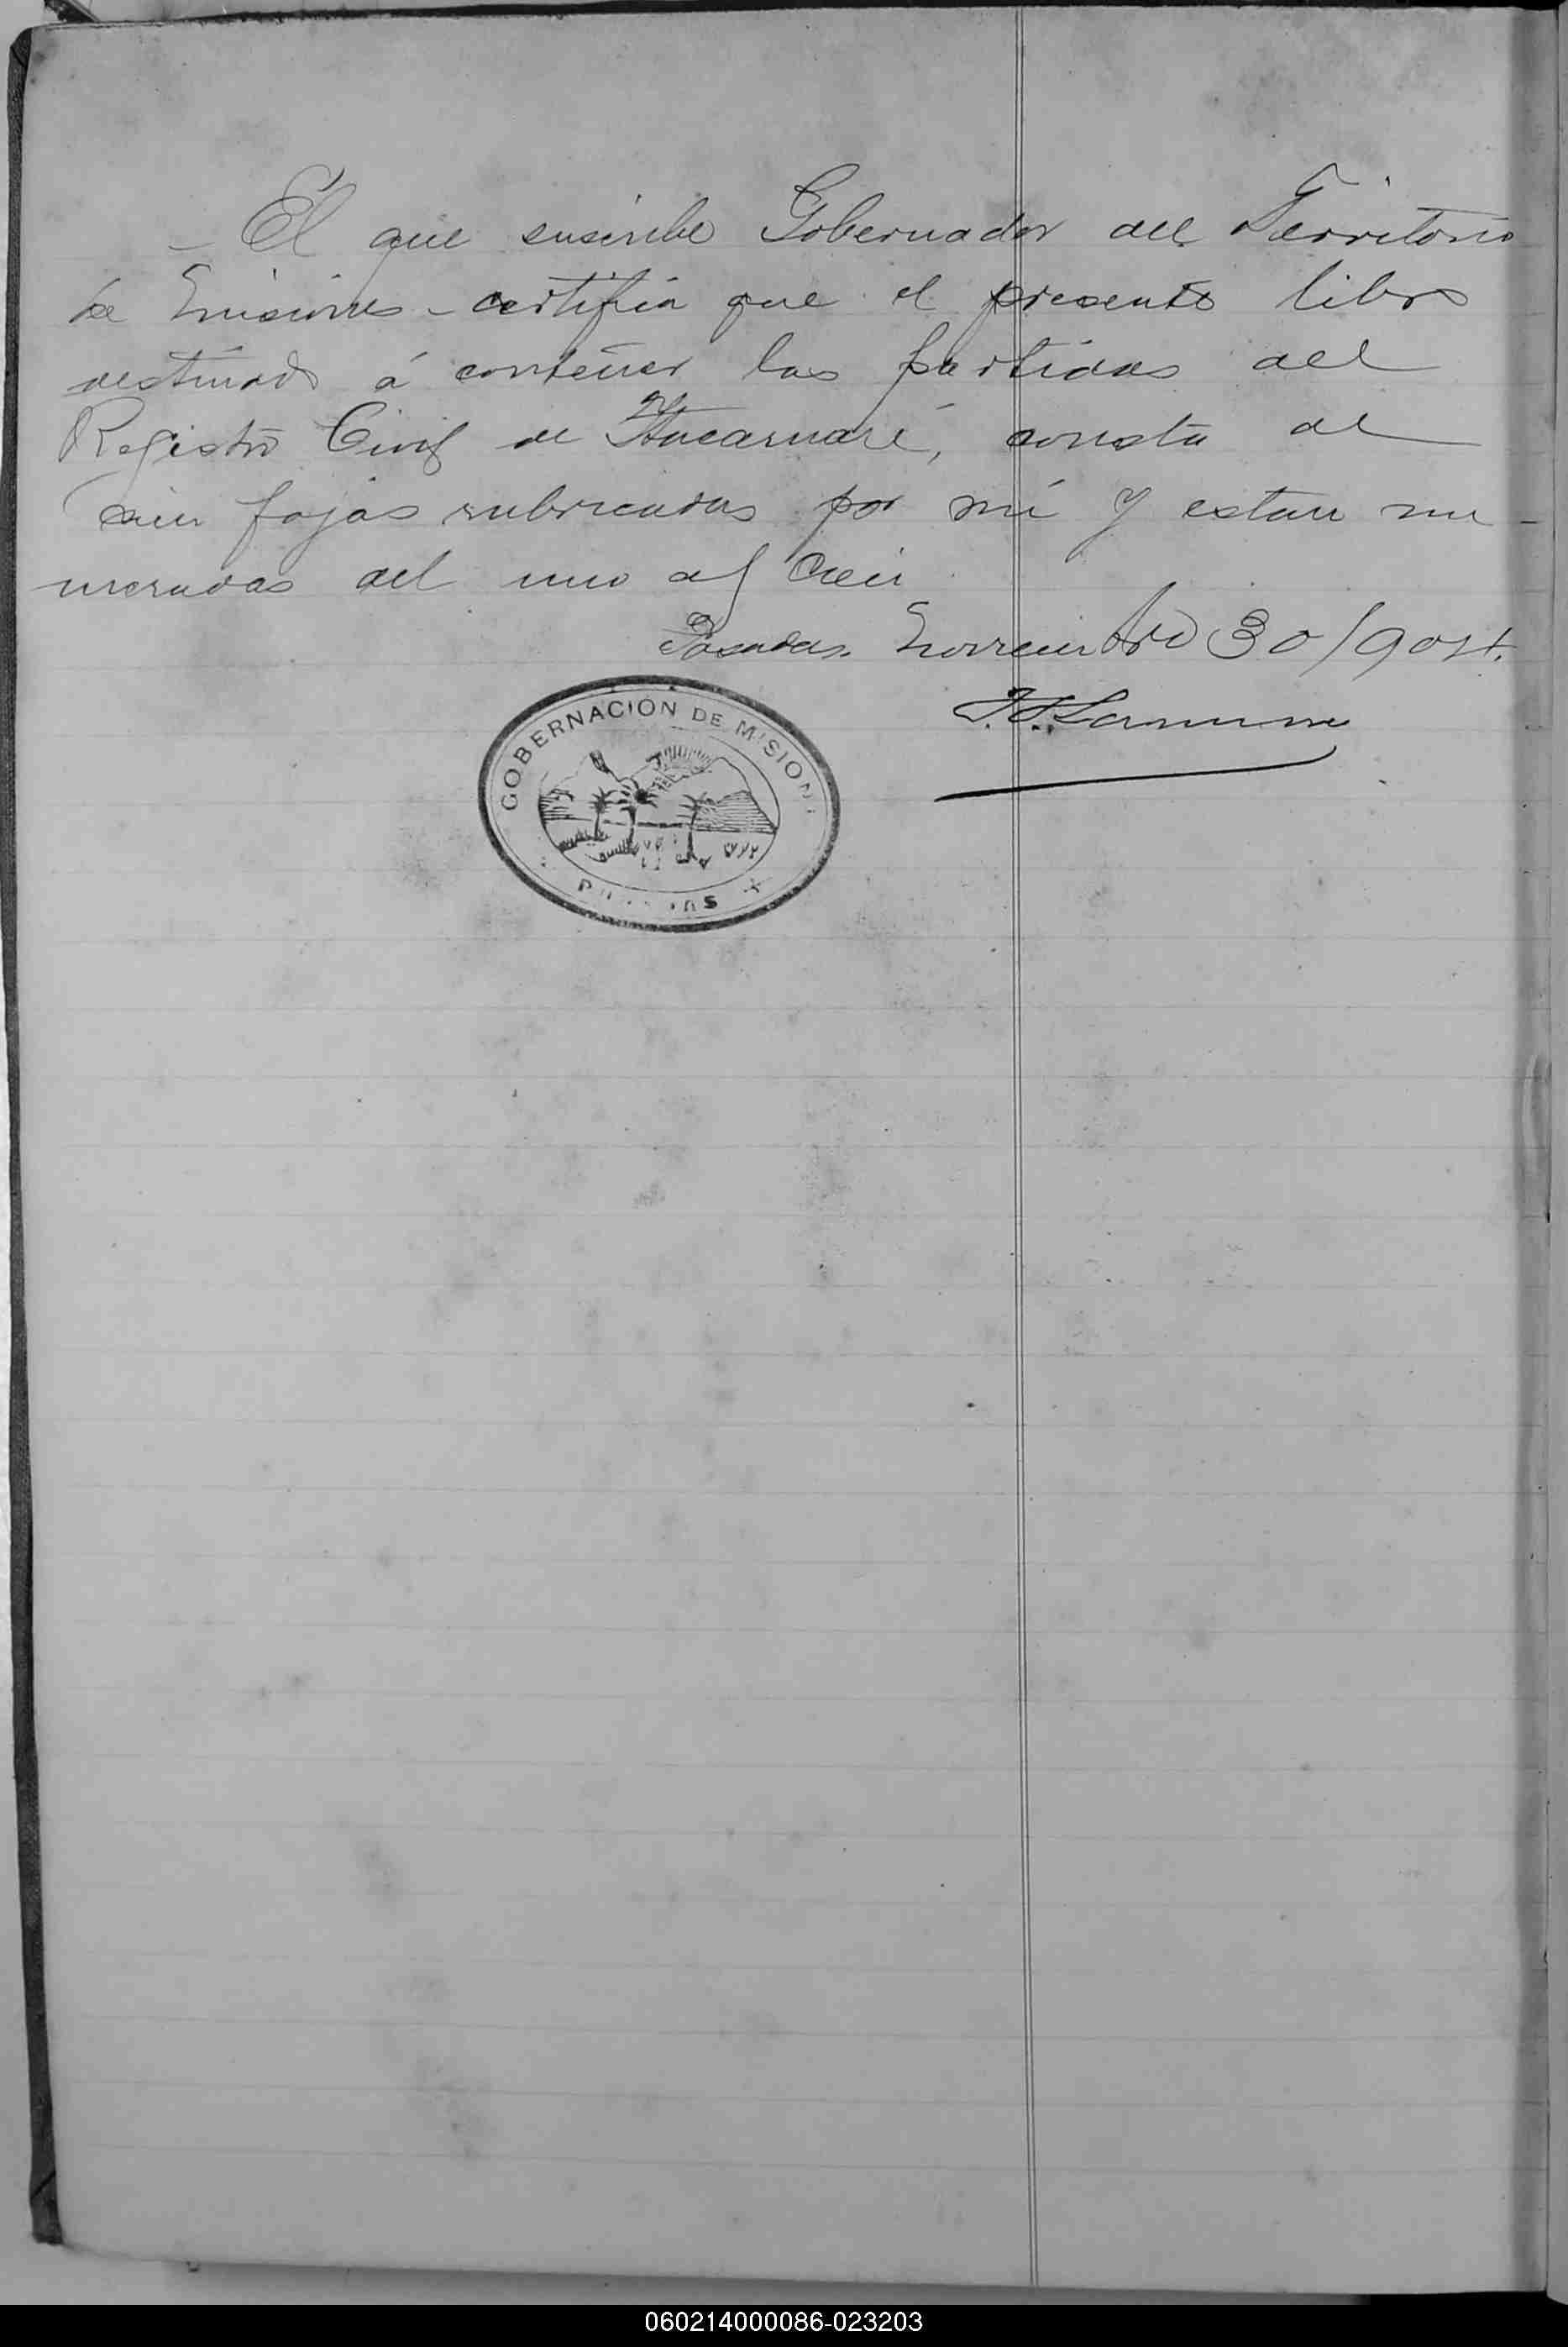 El que suscribe Gobernador del Territorio
de Misiones - certifica que el presente libro
destinado á contener las partidas del
Registro Civil de Itacaruaré, consta de
cien fojas rubricadas por mi y estan nu-
meradas del uno al cien
Posadas. Noviembre 30/904.
J. J. Lanusse
GOBERNACIÓN DE MISION
060214000086-023203